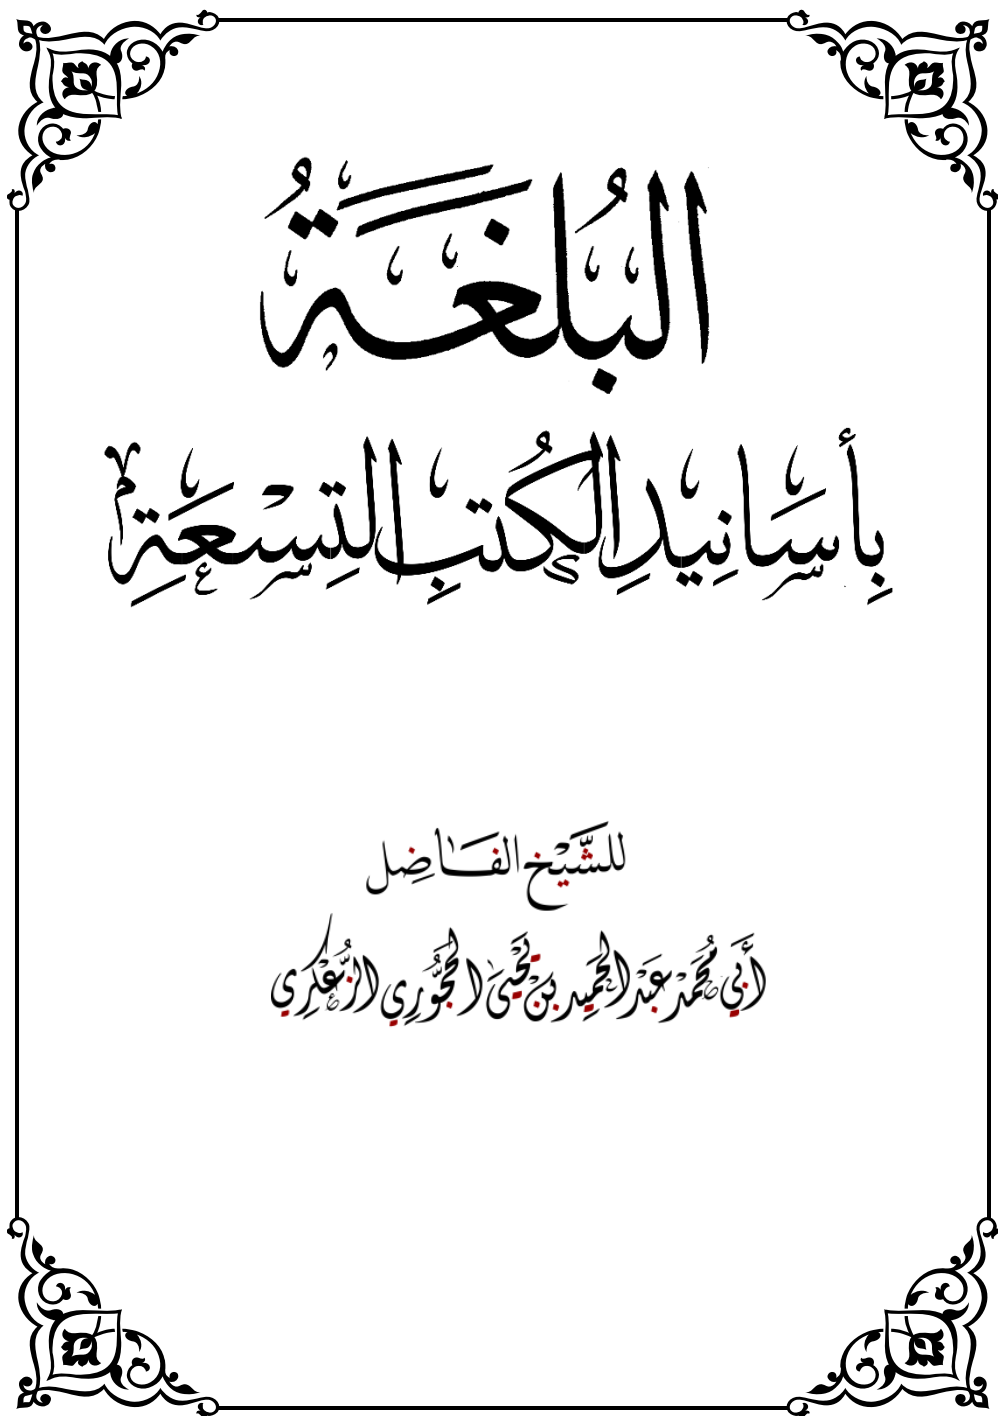 البُلغَةُ
بِأَسَانِيدِ الكُتبِ التِسْعَةِ
للشَّيْخ الفَاضِل
أَبِي مُحَمَّدْ عَبْدالحَمِيد بنْ يَحْيَى الحَجُّورِي الزُّعْكرِي